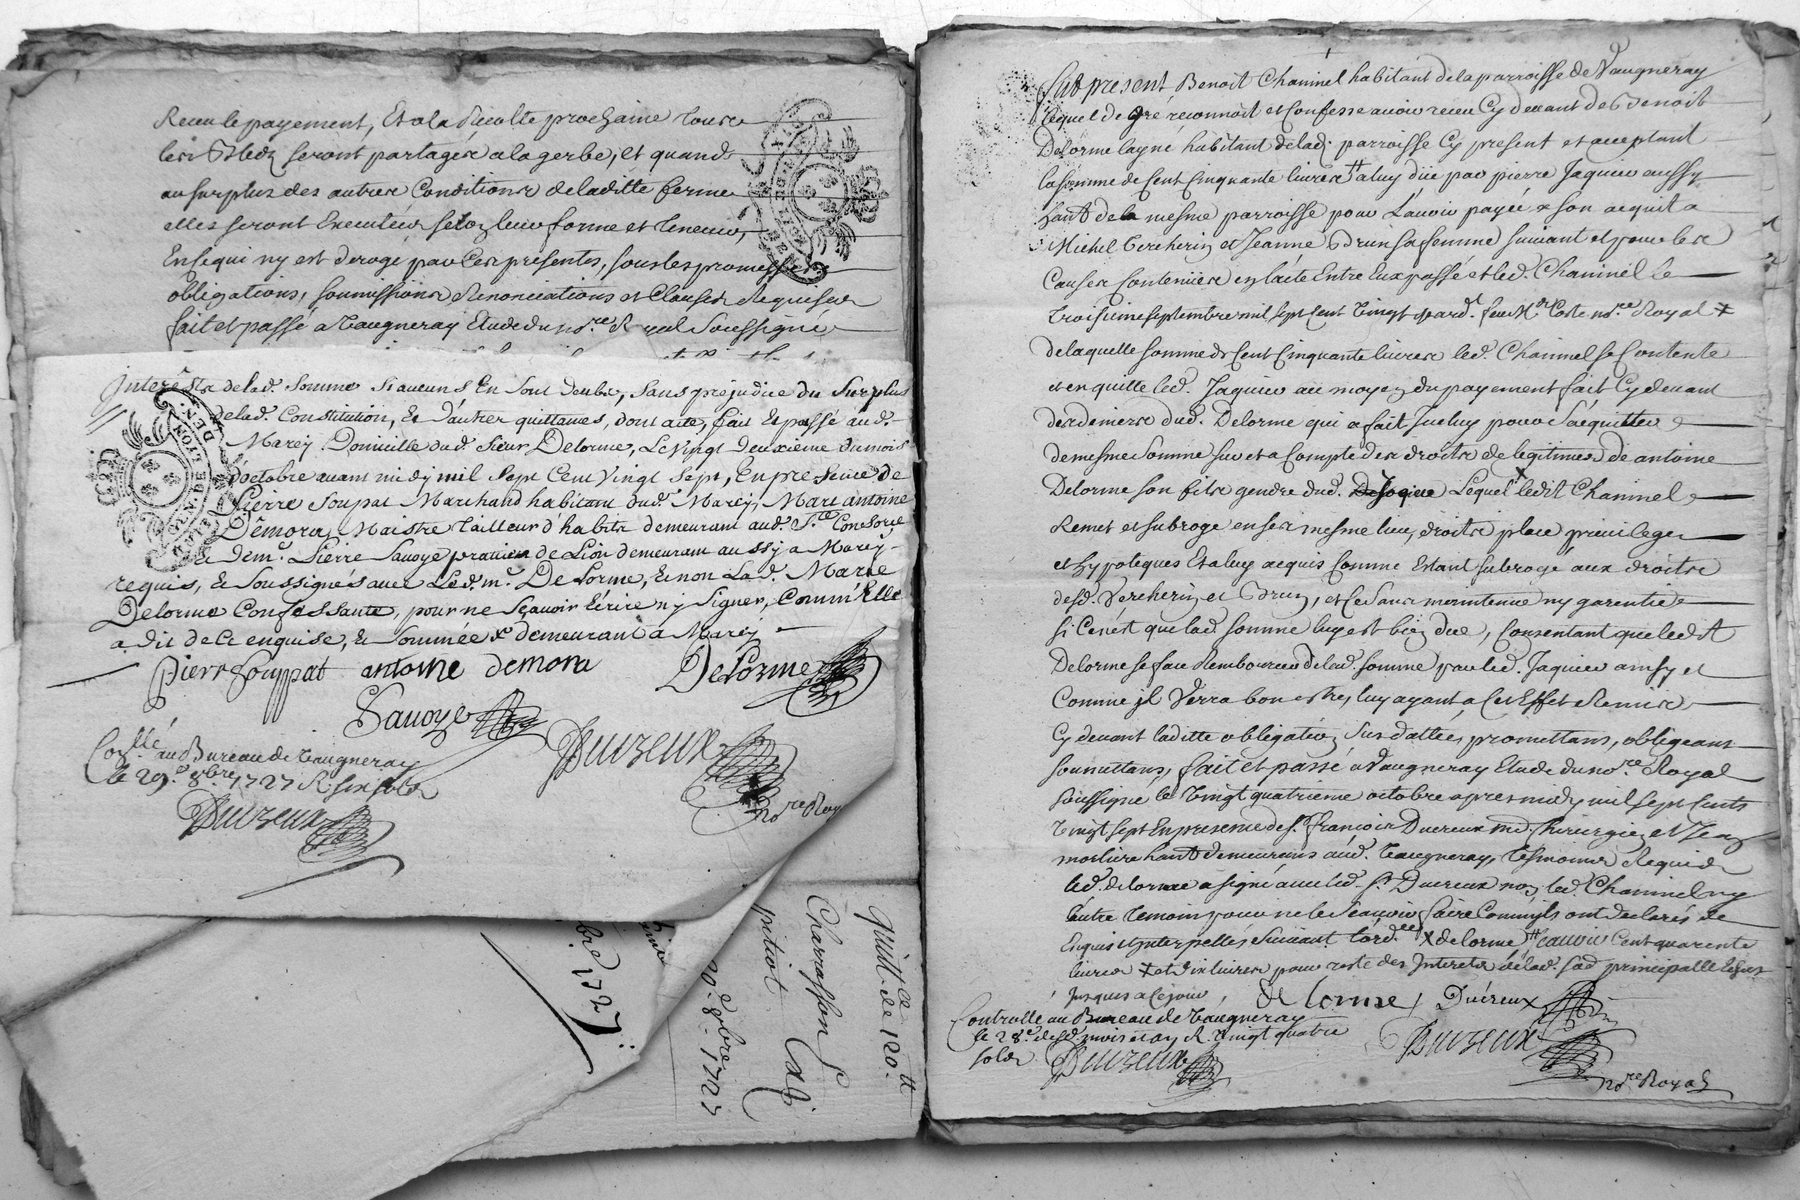 Receu le payement, Et a la Recolte prochaine tous
les Bledz seront partages a la gerbe, et quand
au surplus des autres Conditions de laditte ferme
elles seront Executées selon leur forme et teneur,
En ce qui n'y est derogé par Ces presentes, sous les promesses
obligations, soumissions Renonciations et Clauses Requises
fait et passé a Vaugneray Etude du no.re Royal Soussigné
Interests de lad. somme si aucuns En sont deubs, sans prejudice du surplus
de lad. Constitution, Et d'autres quittances, dont acte, fait Et passé aud.
Marcy Domicille dud. sieur Delorme, Le vingt deuxième du mois
d'octobre avant midy mil Sept Cent Vingt Sept, En presence de
Pierre Soupat Marchand habitant dud. Marcy, Marc antoine
Demora, Maistre tailleur d'habits demeurant aud. S.te Consorce
Et dem. Pierre Savoye praticien de Lion demeurant aussy a Marcy
requis, & Soussignés avec Led. m.r DeLorme, & non Lad. Marie
Delorme Confessante, pour ne Sçavoir Ecrire n'y Signer, Comm'Elle
a dit de Ce enquise, & Sommée x demeurant a Marcy
pierr Souppat antoine demora DeLorme
Savoye
Duizeux
no.re Roy
Con.llé au Bureau de Vaugneray
le 29.e 8.bre 1727 R. six sols
Duizeux
LION DE GN
bre 1727
quitt.ce de 120.tt
Charrasson
20 d. 8bre 1727
Fut present Benoit Chaninel habitant de la parroisse de Vaugneray
Lequel de gré reconnoit et Confesse avoir receu Cy devant de Benoit
Delorme layné habitant de lad. parroisse Cy present et acceptant
la somme de Cent Cinquante livres tt a luy due par pierre Jaquier aussy
hant de la mesme parroisse pour L'avoir payée a son acquit a
Michel Vercherin et Jeanne Brun sa femme suivant et pour les
Causes Contenües en l'acte Entre Eux passé et led. Chaninel le
troisieme septembre mil sept Cent Vingt par d. feu M.r Coste no.re Royal x
de laquelle somme de Cent Cinquante livres led. Chaninel se Contente
et en quitte led. Jaquier au moyen du payement fait Cy devant
des deniers dud. Delorme qui a fait Iceluy pour S'acquitter
de mesme Somme sur et a Compte des droits de legitimes de antoine
Delorme son fils gendre dud. Lequel x ledit Chaninel
Remet et subroge en ses mesme lieu, droits place privileges
et hypoteques Et a luy acquis Comme Estant subrogé aux droits
desd. Vercherin et Brun, et Ce Sans maintenue ny garentie
si Ce n'est que lad. somme luy est bien due, Consentant que ledit
Delorme se fasse Rembourser de lad. somme par led. Jaquier ainsy et
Comme il Verra bon estre, luy ayant a Cet Effet Remis
Cy devant laditte obligation Sus dattée, promettans, obligeans
soumettans, fait et passé a Vaugneray Etude du no.re Royal
soussigné le Vingt quatrieme octobre apres midy mil sept Cents
Vingt sept En presence de S.r François Ducreux m.d Chirurgien et Jean
morliere hant demeurans aud. Vaugneray, tesmoins Requis
led. delorme a signé avec led. S.r Ducreux non led. Chaninel ny
l'autre temoin pour ne le Sçavoir faire Comm'ils ont declarés de
Enquis et Interpellés Suivant l'ord.ce x delorme tt scavoir Cent quarente
livres x et dix livres pour reste des Interets de lad. sad. principalle Echus
Jusques a Ce jour, de lorme, Ducreux
Controllé au Bureau de Vaugneray
le 28.e desd. mois et an R. vingt quatre
sols Duizeux
Duizeux
no.re Royal